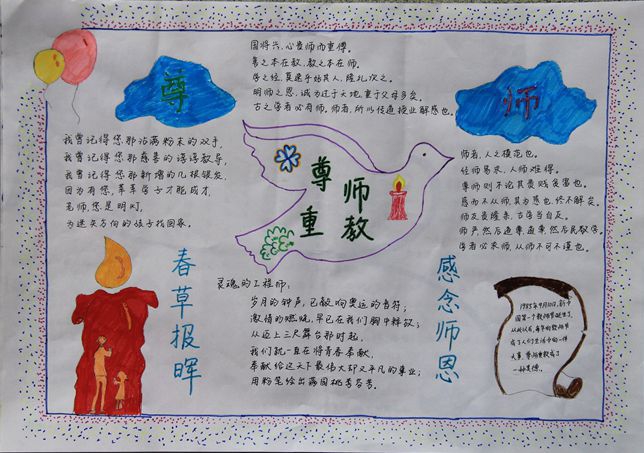 国将兴,心贵师而重傅。
善之本在教,教之本在师。
学之经,莫速乎好其人,隆礼次之。
明师之恩,诚为过于天地,重于父母多矣。
古之学者必有师。师者,所以传道授业解惑也。
尊
师
我曾记得您那沾满粉末的双手,
我曾记得您那慈善的谆谆教导,
我曾记得您那新增的几根银发。
因为有您,莘莘学子才能成才,
老师,您是明灯,
为迷失方向的孩子找回家。
尊师
重教
师者,人之模范也。
经师易求,人师难得。
尊师则不论其贵贱贫富也。
惑而不从师,其为惑也,终不解矣。
师严然后道尊,道尊然后民敬学。
学者必求师,从师不可不谨也。
春草报晖
灵魂的工程师:
岁月的钟声,已敲响奥运的音符;
激情的燃烧,早已在我们胸中释放;
从迈上三尺舞台那时起,
我们就一直在将青春奉献,
奉献给这天下最伟大却又平凡的事业;
用粉笔绘出满园桃李芬芳。
感念师恩
1985年9月10日,新中
国第一个教师节诞生了,
从此以后,每年的教师节
成了人们生活中的一件
大事,尊师重教成了
一种美德。